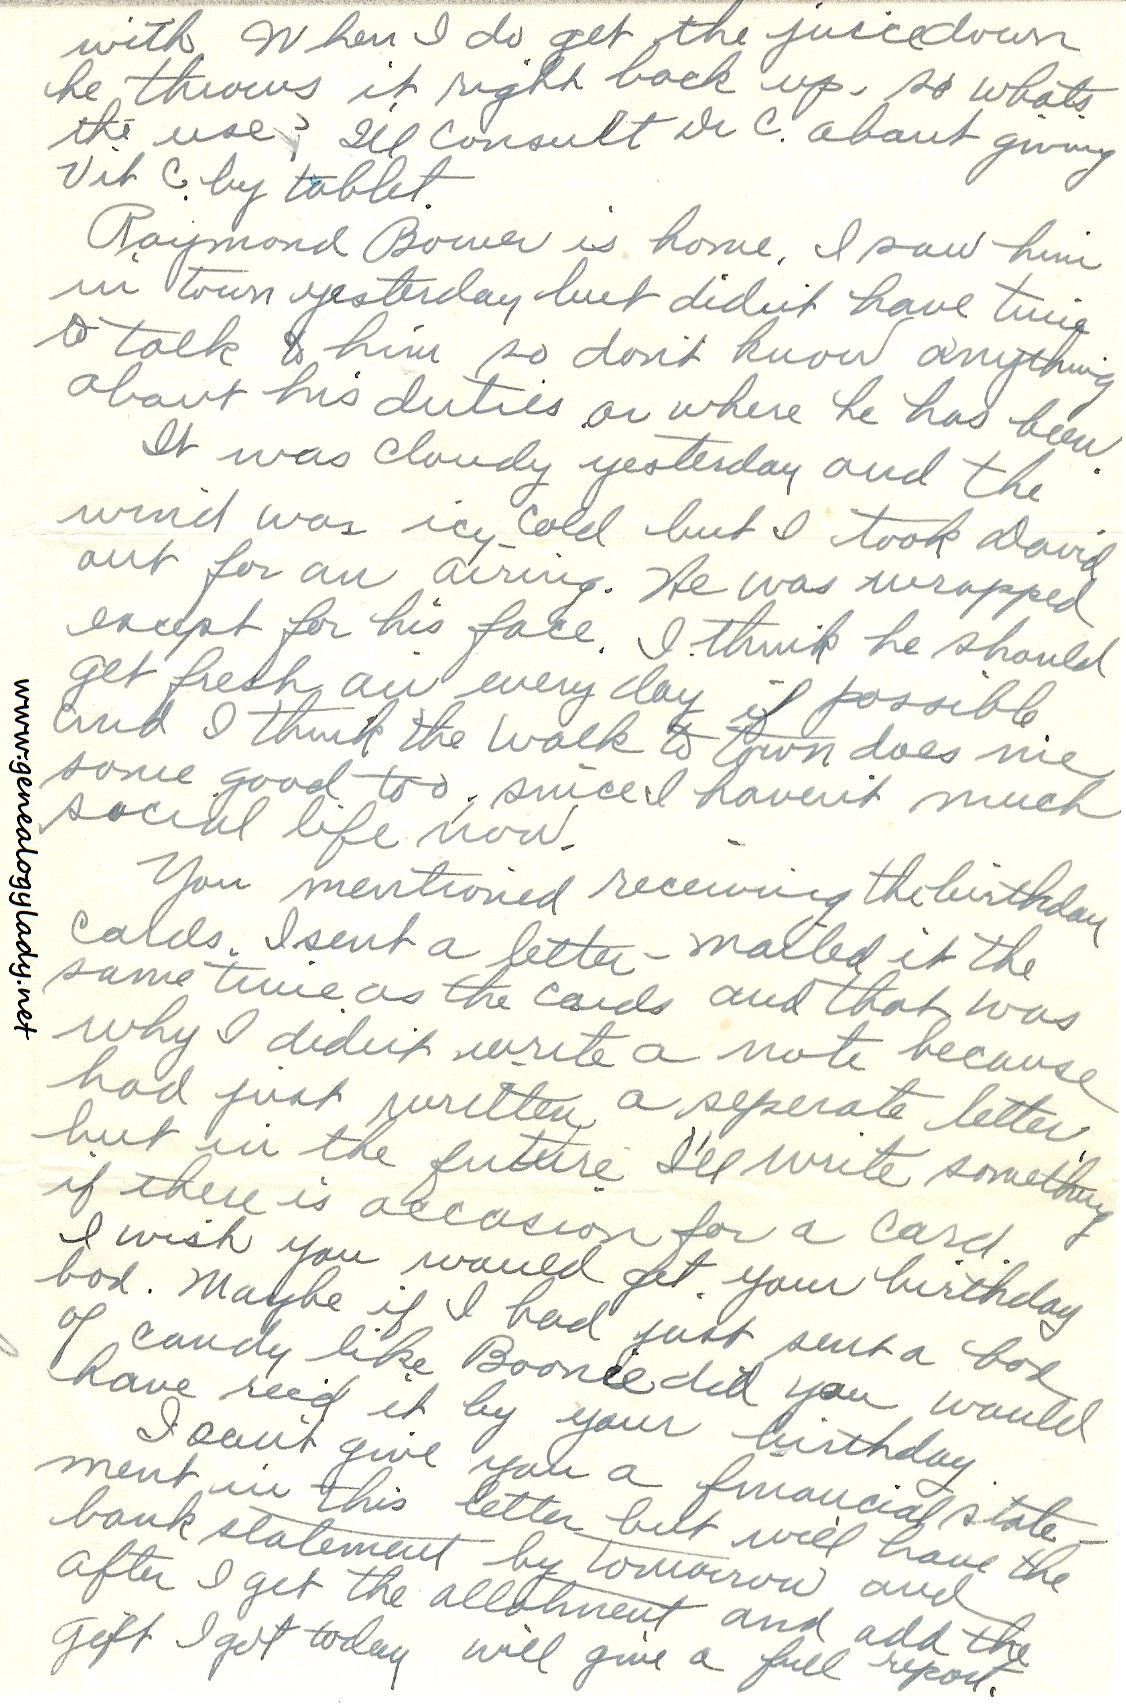 with. When I do get the juice down
he throws it right back up. so whats
the use? I'll consult Dr C. about giving
Vit C. by tablet.
Raymond Bower is home. I saw him
in town yesterday but didn't have time
to talk to him so don't know anything
about his duties or where he has been.
It was cloudy yesterday and the
wind was icy cold but I took David
out for an airing. He was wrapped
except for his face. I think he should
get fresh air every day if possible
and I think the walk to town does me
some good too, since I haven't much
social life now.
You mentioned receiving the birthday
cards. I sent a letter - mailed it the
same time as the cards and that was
why I didn't write a note because
had just written a seperate letter,
but in the future I'll write something
if there is occasion for a card.
I wish you would get your birthday
box. Maybe if I had just sent a box
of candy like Boonie did you would
have rec'd it by your birthday.
I can't give you a financial state-
ment in this letter but will have the
bank statement by tomorrow and
after I get the allotment and add the
gift I got today will give a full report.
www.genealogylady.net